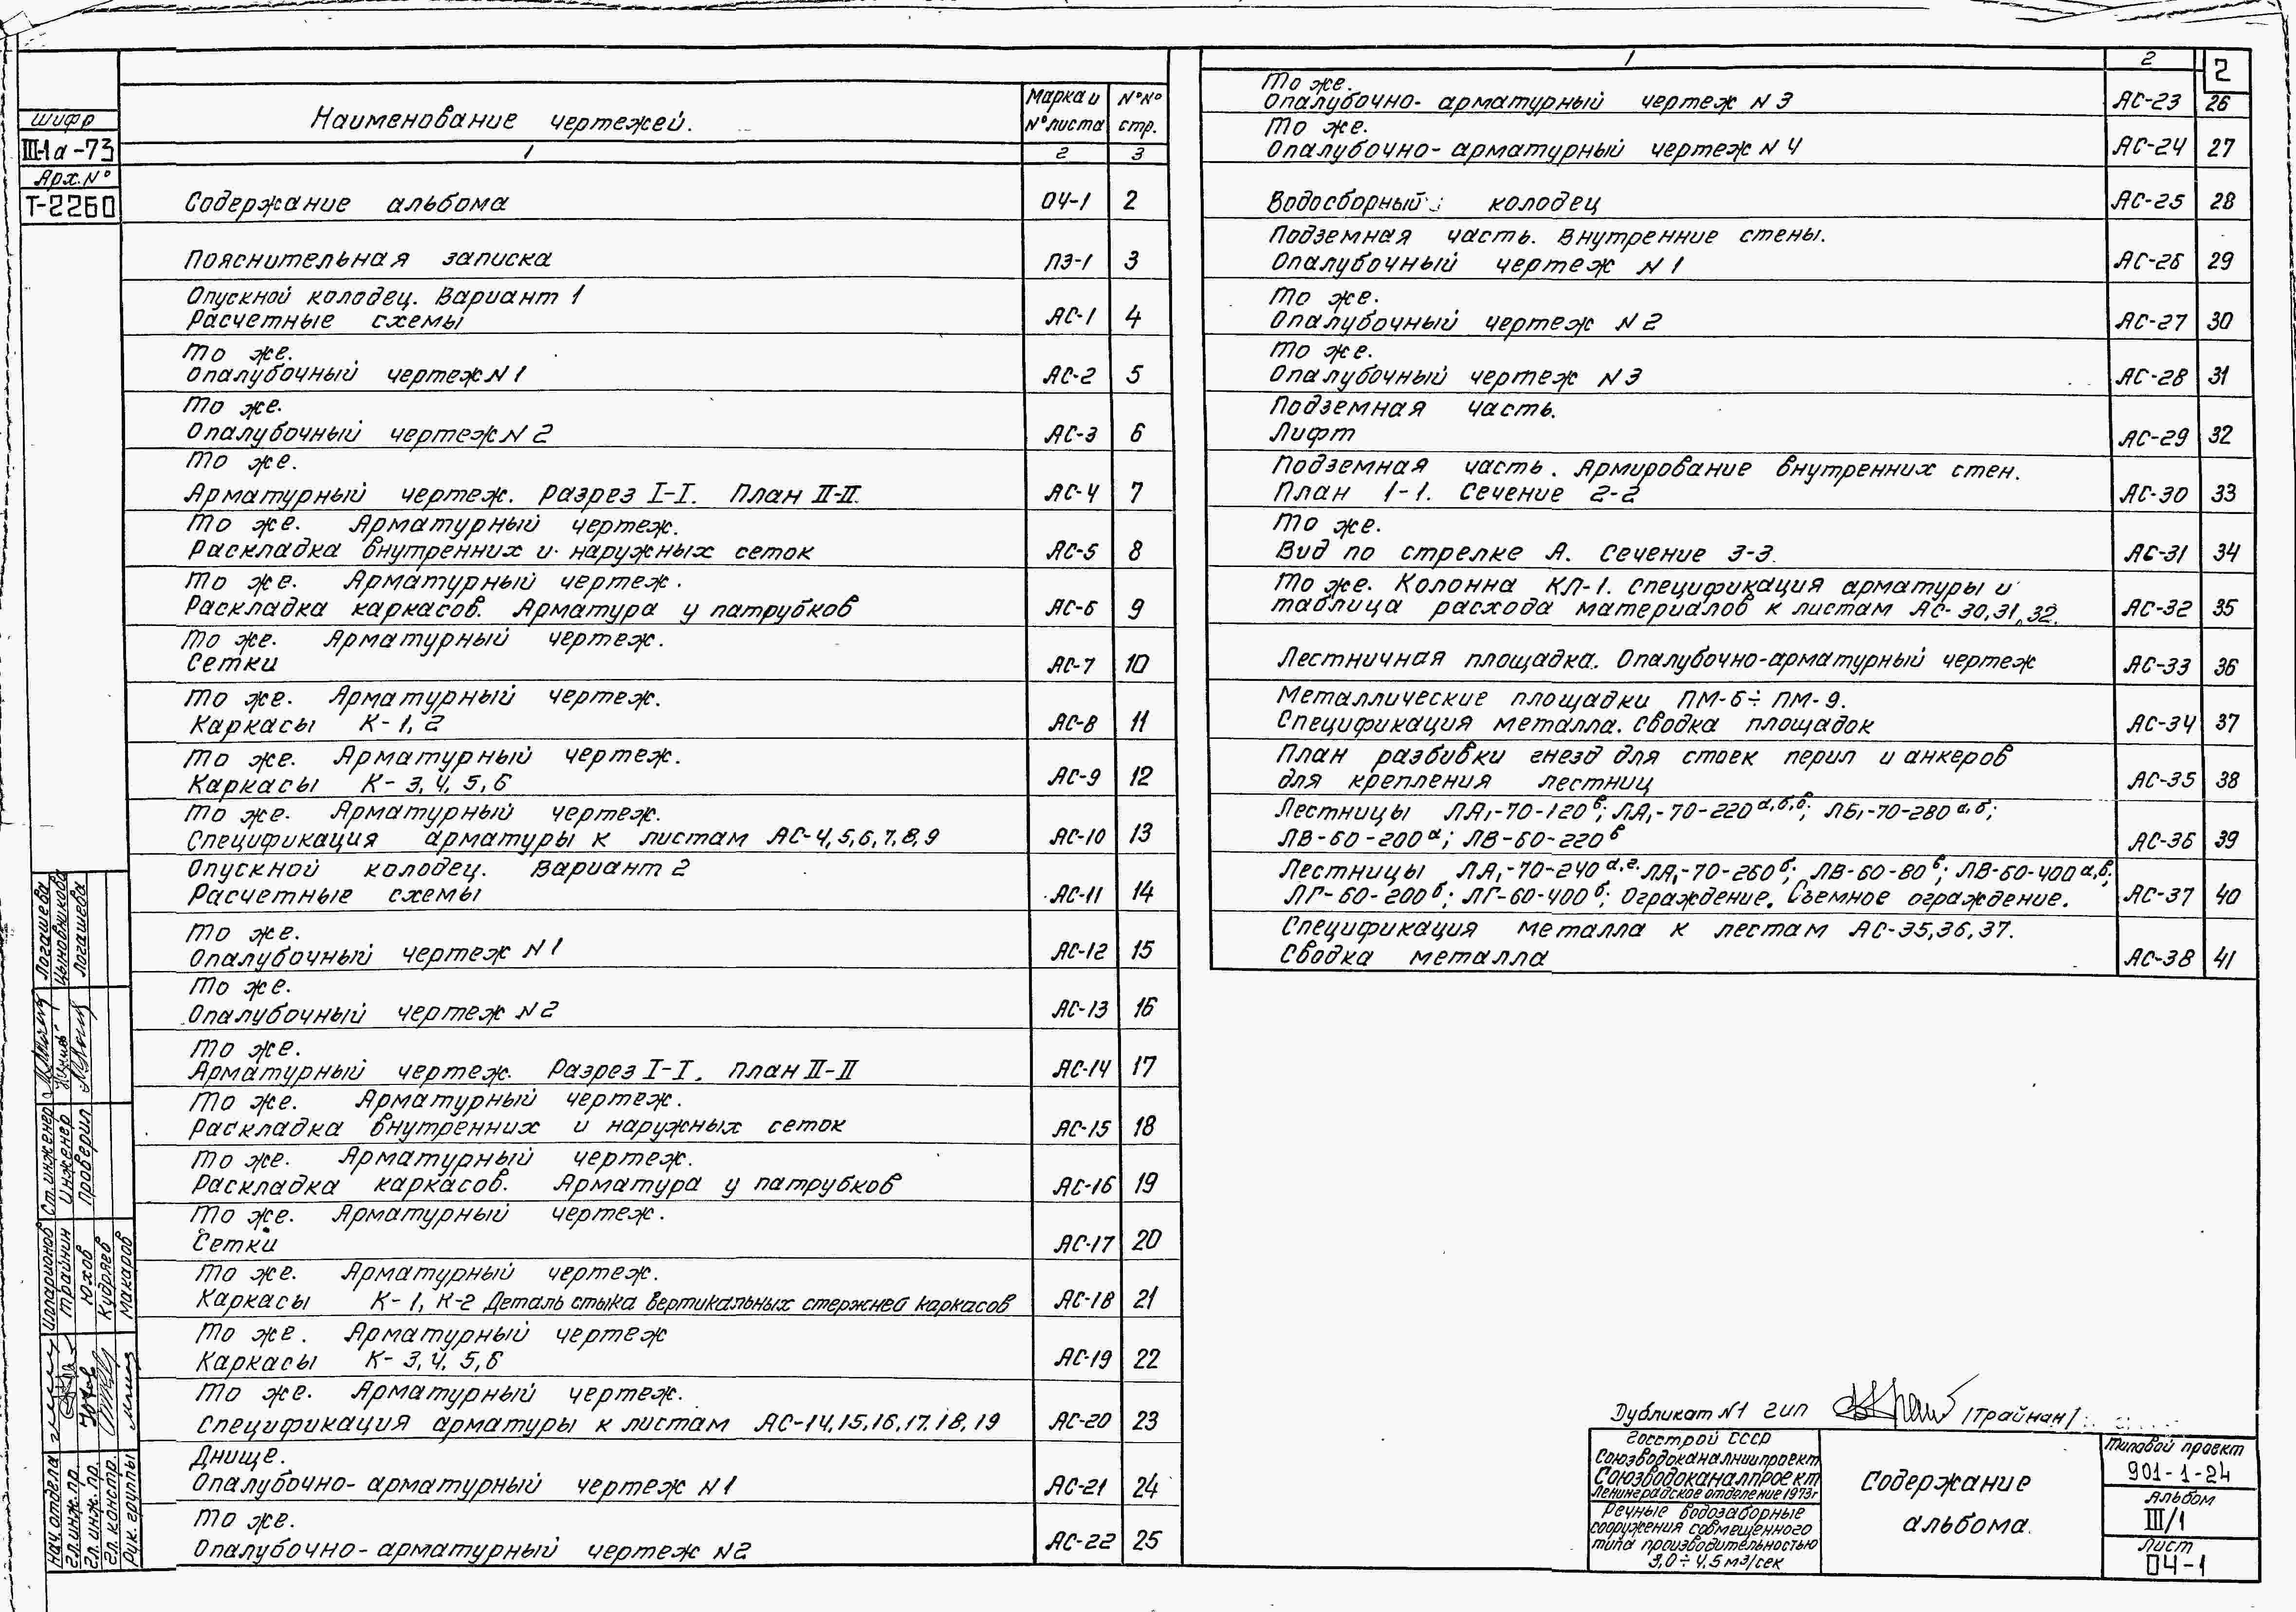 шифр
III-1а-73
Арх.N°
Т-2260
Наименование чертежей.
Марка и N° листа
N°N° стр.
1 2 3
Содержание альбома ОЧ-1 2
Пояснительная записка ПЗ-1 3
Опускной колодец. Вариант 1
Расчетные схемы АС-1 4
То же.
Опалубочный чертеж N 1 АС-2 5
То же.
Опалубочный чертеж N 2 АС-3 6
То же.
Арматурный чертеж. Разрез I-I. План II-II. АС-4 7
То же. Арматурный чертеж.
Раскладка внутренних и наружных сеток АС-5 8
То же. Арматурный чертеж.
Раскладка каркасов. Арматура у патрубков АС-6 9
То же. Арматурный чертеж.
Сетки АС-7 10
То же. Арматурный чертеж.
Каркасы К-1, 2 АС-8 11
То же. Арматурный чертеж.
Каркасы К-3, 4, 5, 6 АС-9 12
То же. Арматурный чертеж.
Спецификация арматуры к листам АС-4, 5, 6, 7, 8, 9 АС-10 13
Опускной колодец. Вариант 2
Расчетные схемы АС-11 14
То же.
Опалубочный чертеж N 1 АС-12 15
То же.
Опалубочный чертеж N 2 АС-13 16
То же.
Арматурный чертеж. Разрез I-I. План II-II АС-14 17
То же. Арматурный чертеж.
Раскладка внутренних и наружных сеток АС-15 18
То же. Арматурный чертеж.
Раскладка каркасов. Арматура у патрубков АС-16 19
То же. Арматурный чертеж.
Сетки АС-17 20
То же. Арматурный чертеж.
Каркасы К-1, К-2 Деталь стыка вертикальных стержней каркасов АС-18 21
То же. Арматурный чертеж
Каркасы К-3, 4, 5, 6 АС-19 22
То же. Арматурный чертеж.
Спецификация арматуры к листам АС-14, 15, 16, 17. 18, 19 АС-20 23
Днище.
Опалубочно-арматурный чертеж N 1 АС-21 24
То же.
Опалубочно-арматурный чертеж N2 АС-22 25
1 2
2
То же.
Опалубочно-арматурный чертеж N 3 АС-23 26
То же.
Опалубочно-арматурный чертеж N 4 АС-24 27
Водосборный колодец АС-25 28
Подземная часть. Внутренние стены.
Опалубочный чертеж N 1 АС-26 29
То же.
Опалубочный чертеж N 2 АС-27 30
То же.
Опалубочный чертеж N 3 АС-28 31
Подземная часть.
Лифт АС-29 32
Подземная часть. Армирование внутренних стен.
План 1-1. Сечение 2-2 АС-30 33
То же.
Вид по стрелке А. Сечение 3-3. АС-31 34
То же. Колонна КЛ-1. Спецификация арматуры и
таблица расхода материалов к листам АС-30, 31, 32. АС-32 35
Лестничная площадка. Опалубочно-арматурный чертеж АС-33 36
Металлические площадки ПМ-6÷ПМ-9.
Спецификация металла. Сводка площадок АС-34 37
План разбивки гнезд для стоек перил и анкеров
для крепления лестниц АС-35 38
Лестницы ЛА₁-70-120в; ЛА₁-70-220а,б,в; ЛБ₁-70-280а,б;
ЛВ-60-200а; ЛВ-60-220в АС-36 39
Лестницы ЛА₁-70-240а,г. ЛА₁-70-260б; ЛВ-60-80в; ЛВ-60-400а,б;
ЛГ-60-200б; ЛГ-60-400б; Ограждение. Съемное ограждение. АС-37 40
Спецификация металла к лестам АС-35, 36, 37.
Сводка металла АС-38 41
Ст.инженер Логашева
Инженер Цыновникова
Проверил Логашева
Нач.отдела Илларионов
Гл.инж.пр. Трайнин
Гл.инж.пр. Юхов
Гл.констр. Кудряев
Рук.группы Макаров
Дубликат N1 ГИП /Трайнан/
Госстрой СССР
Союзводоканалниипроект
Союзводоканалпроект
Ленинградское отделение 1973г
Речные водозаборные
сооружения совмещенного
типа производительностью
3,0÷4,5 м3/сек
Содержание
альбома.
Типовой проект
901-1-24
Альбом
III/1
Лист
ОЧ-1